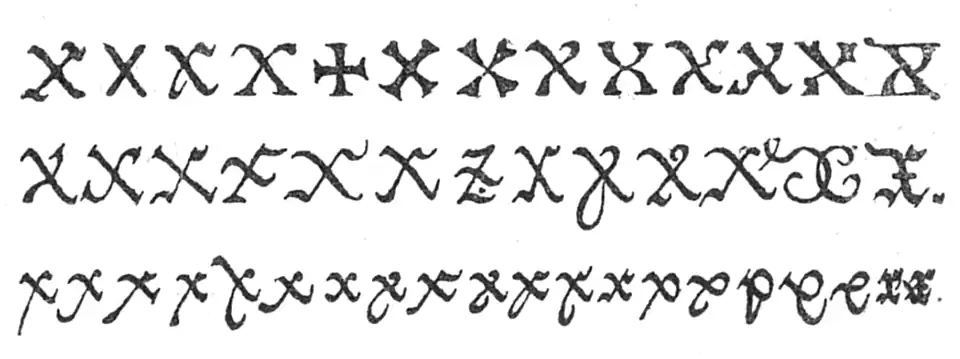 X X X X X X X X X X X X X
X X X X X X X X X X X X X.
x x x x x x x x x x x x x x x x x x x x.